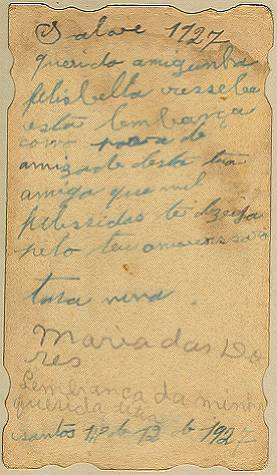 Salave 1927
querida amiguinha
felisbella vesseba
esta lembança
como prova de
amizade desta tua
amiga que mil
felissidas te dezeija
pelo teu
tata nena
Maria das Do
res
Lembrança da minha
querida
santos 11 de 12 de 1927